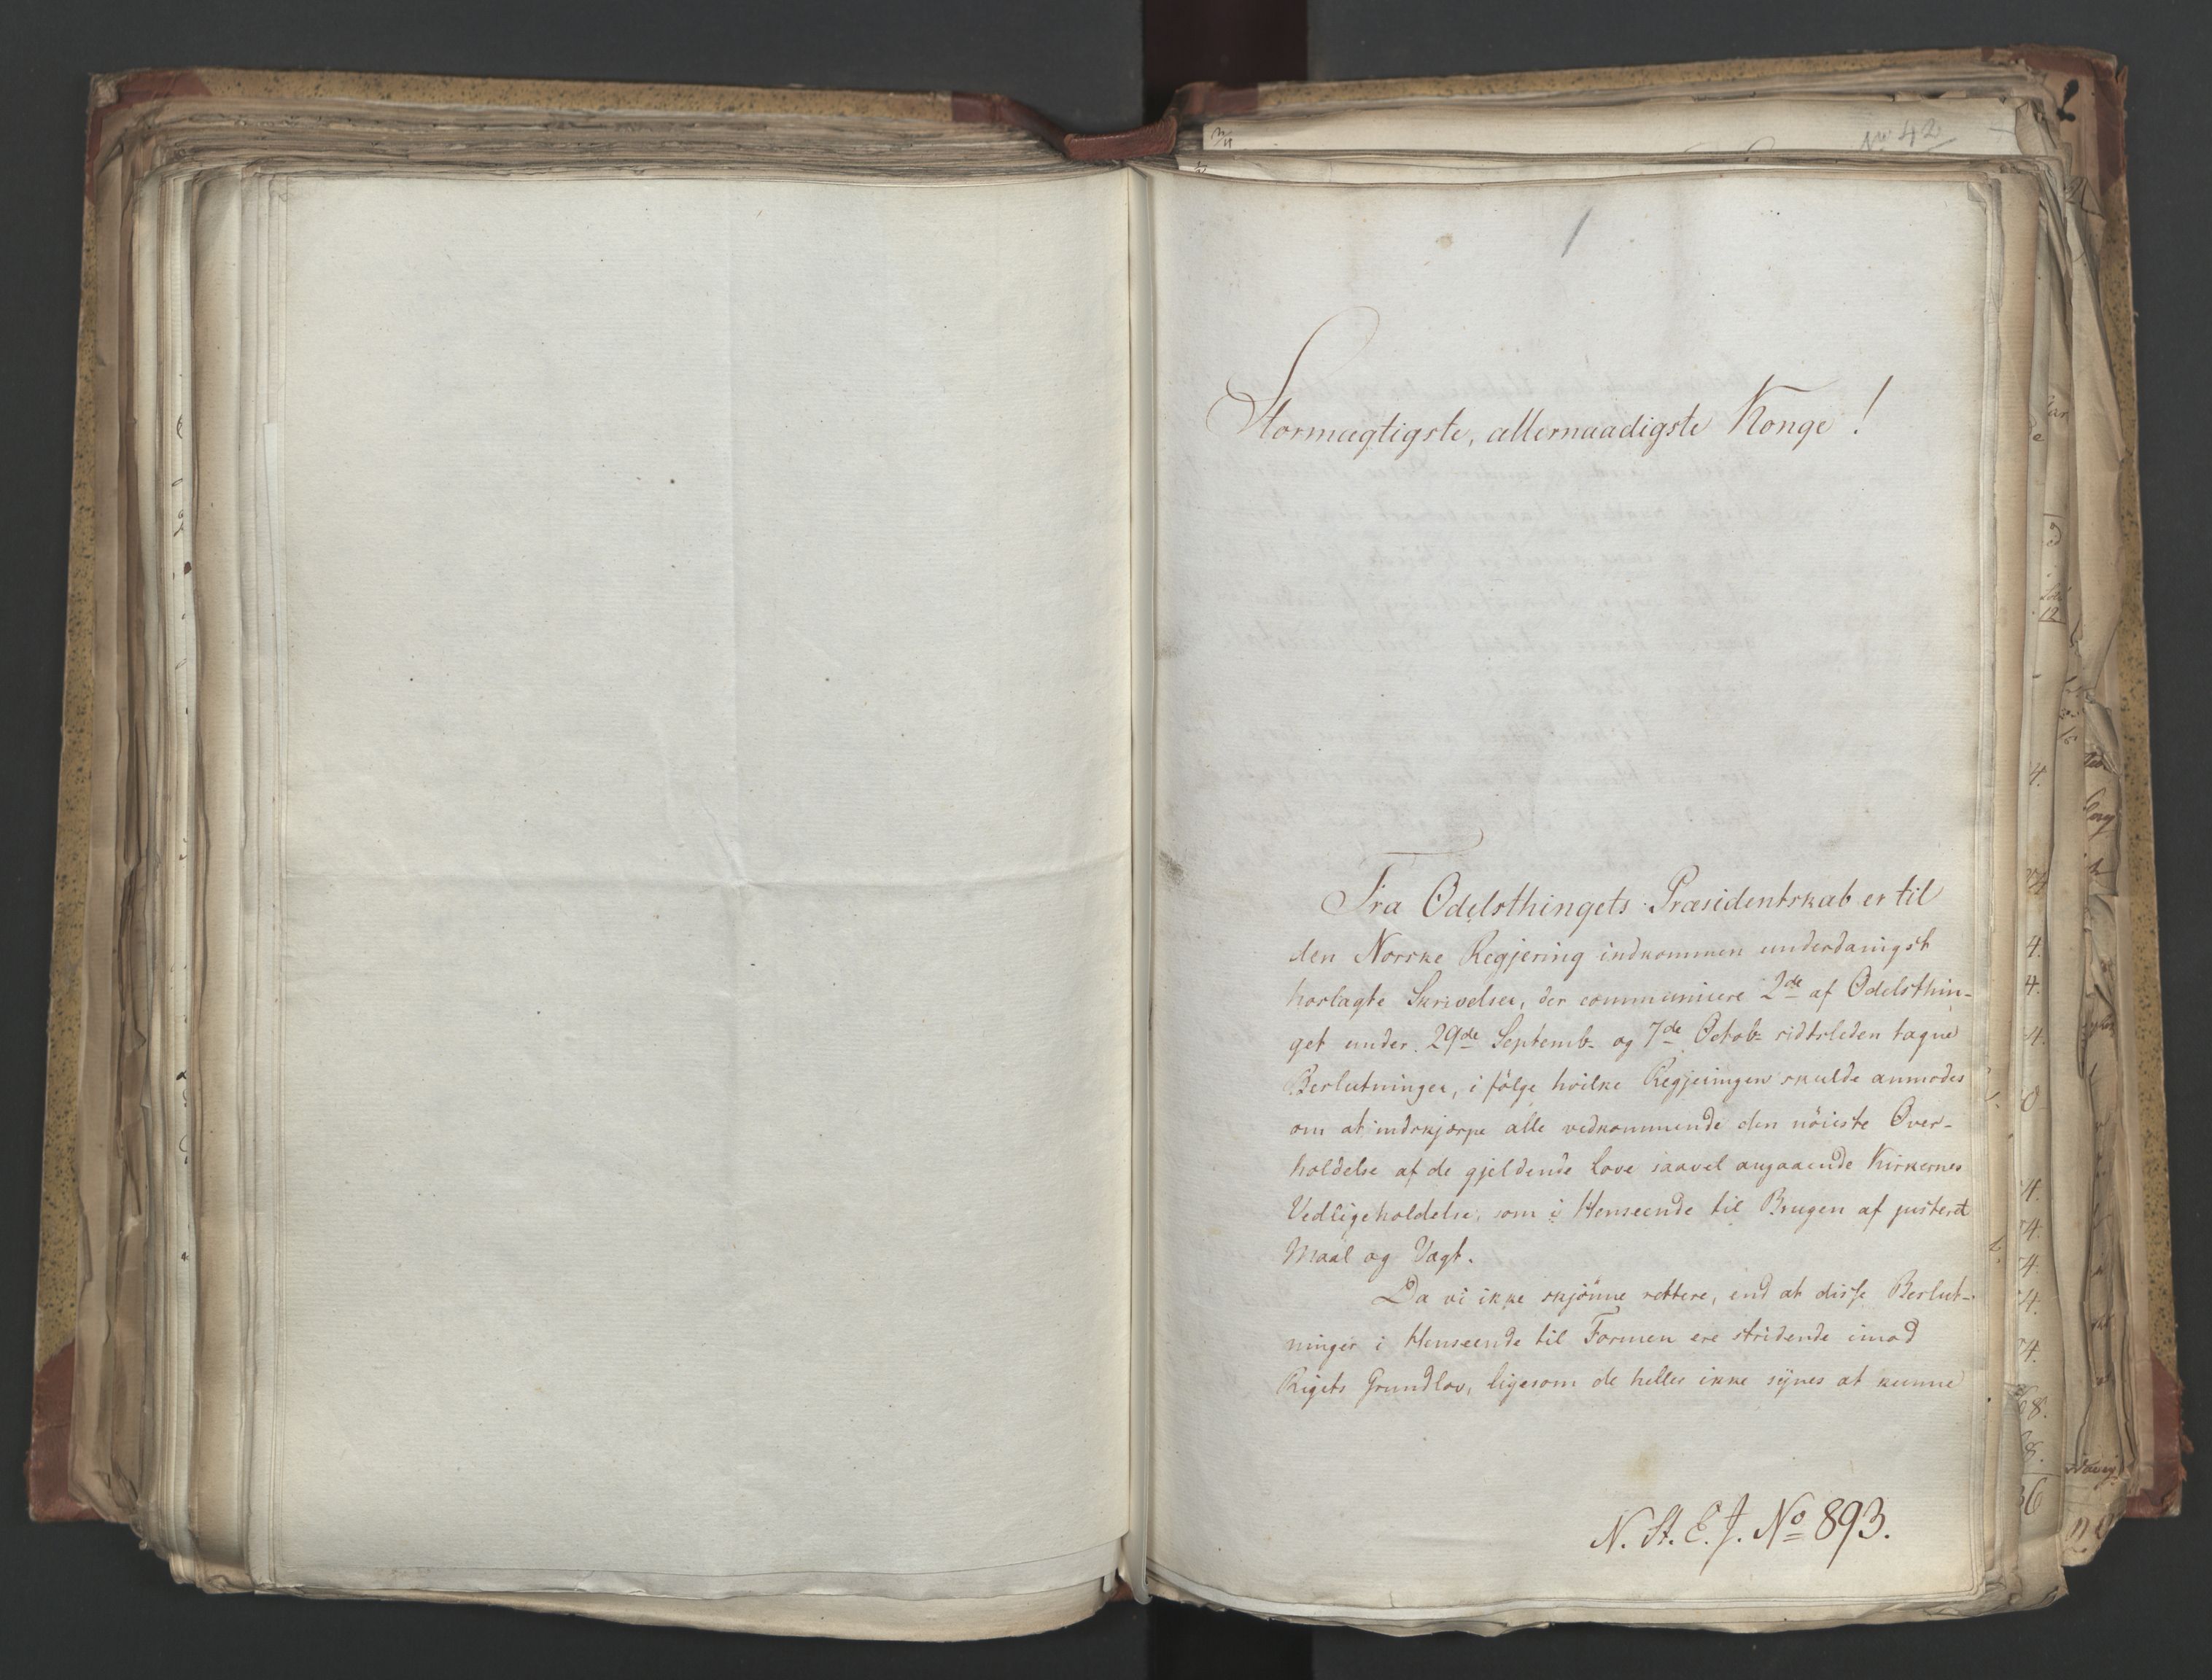 No 42
Stormægtigste, allernaadigste Konge!
Fra Odelsthingets Præsidentskab er til
den Norske Regjering indkommen underdanigst
hoslagte Skrivelser, der communicere 2de af Odelsthin-
get under 29de Septemb. og 7de Octob. sidtsleden tagne
Beslutninger, i følge hvilke Regjeringen skulde anmodes
om at indskjærpe alle vedkommende den nöieste Over-
holdelse af de gjeldende Love saavel angaaende Kirkernes
Vedligeholdelse, som i Henseende til Brugen af justeret
Maal og Vægt.
Da vi ikke skjönne rettere, end at disse Beslut-
ninger i Henseende til Formen ere stridende imod
Rigets Grundlov, ligesom de heller ikke synes at kunne
N. St. E. J. No 893.